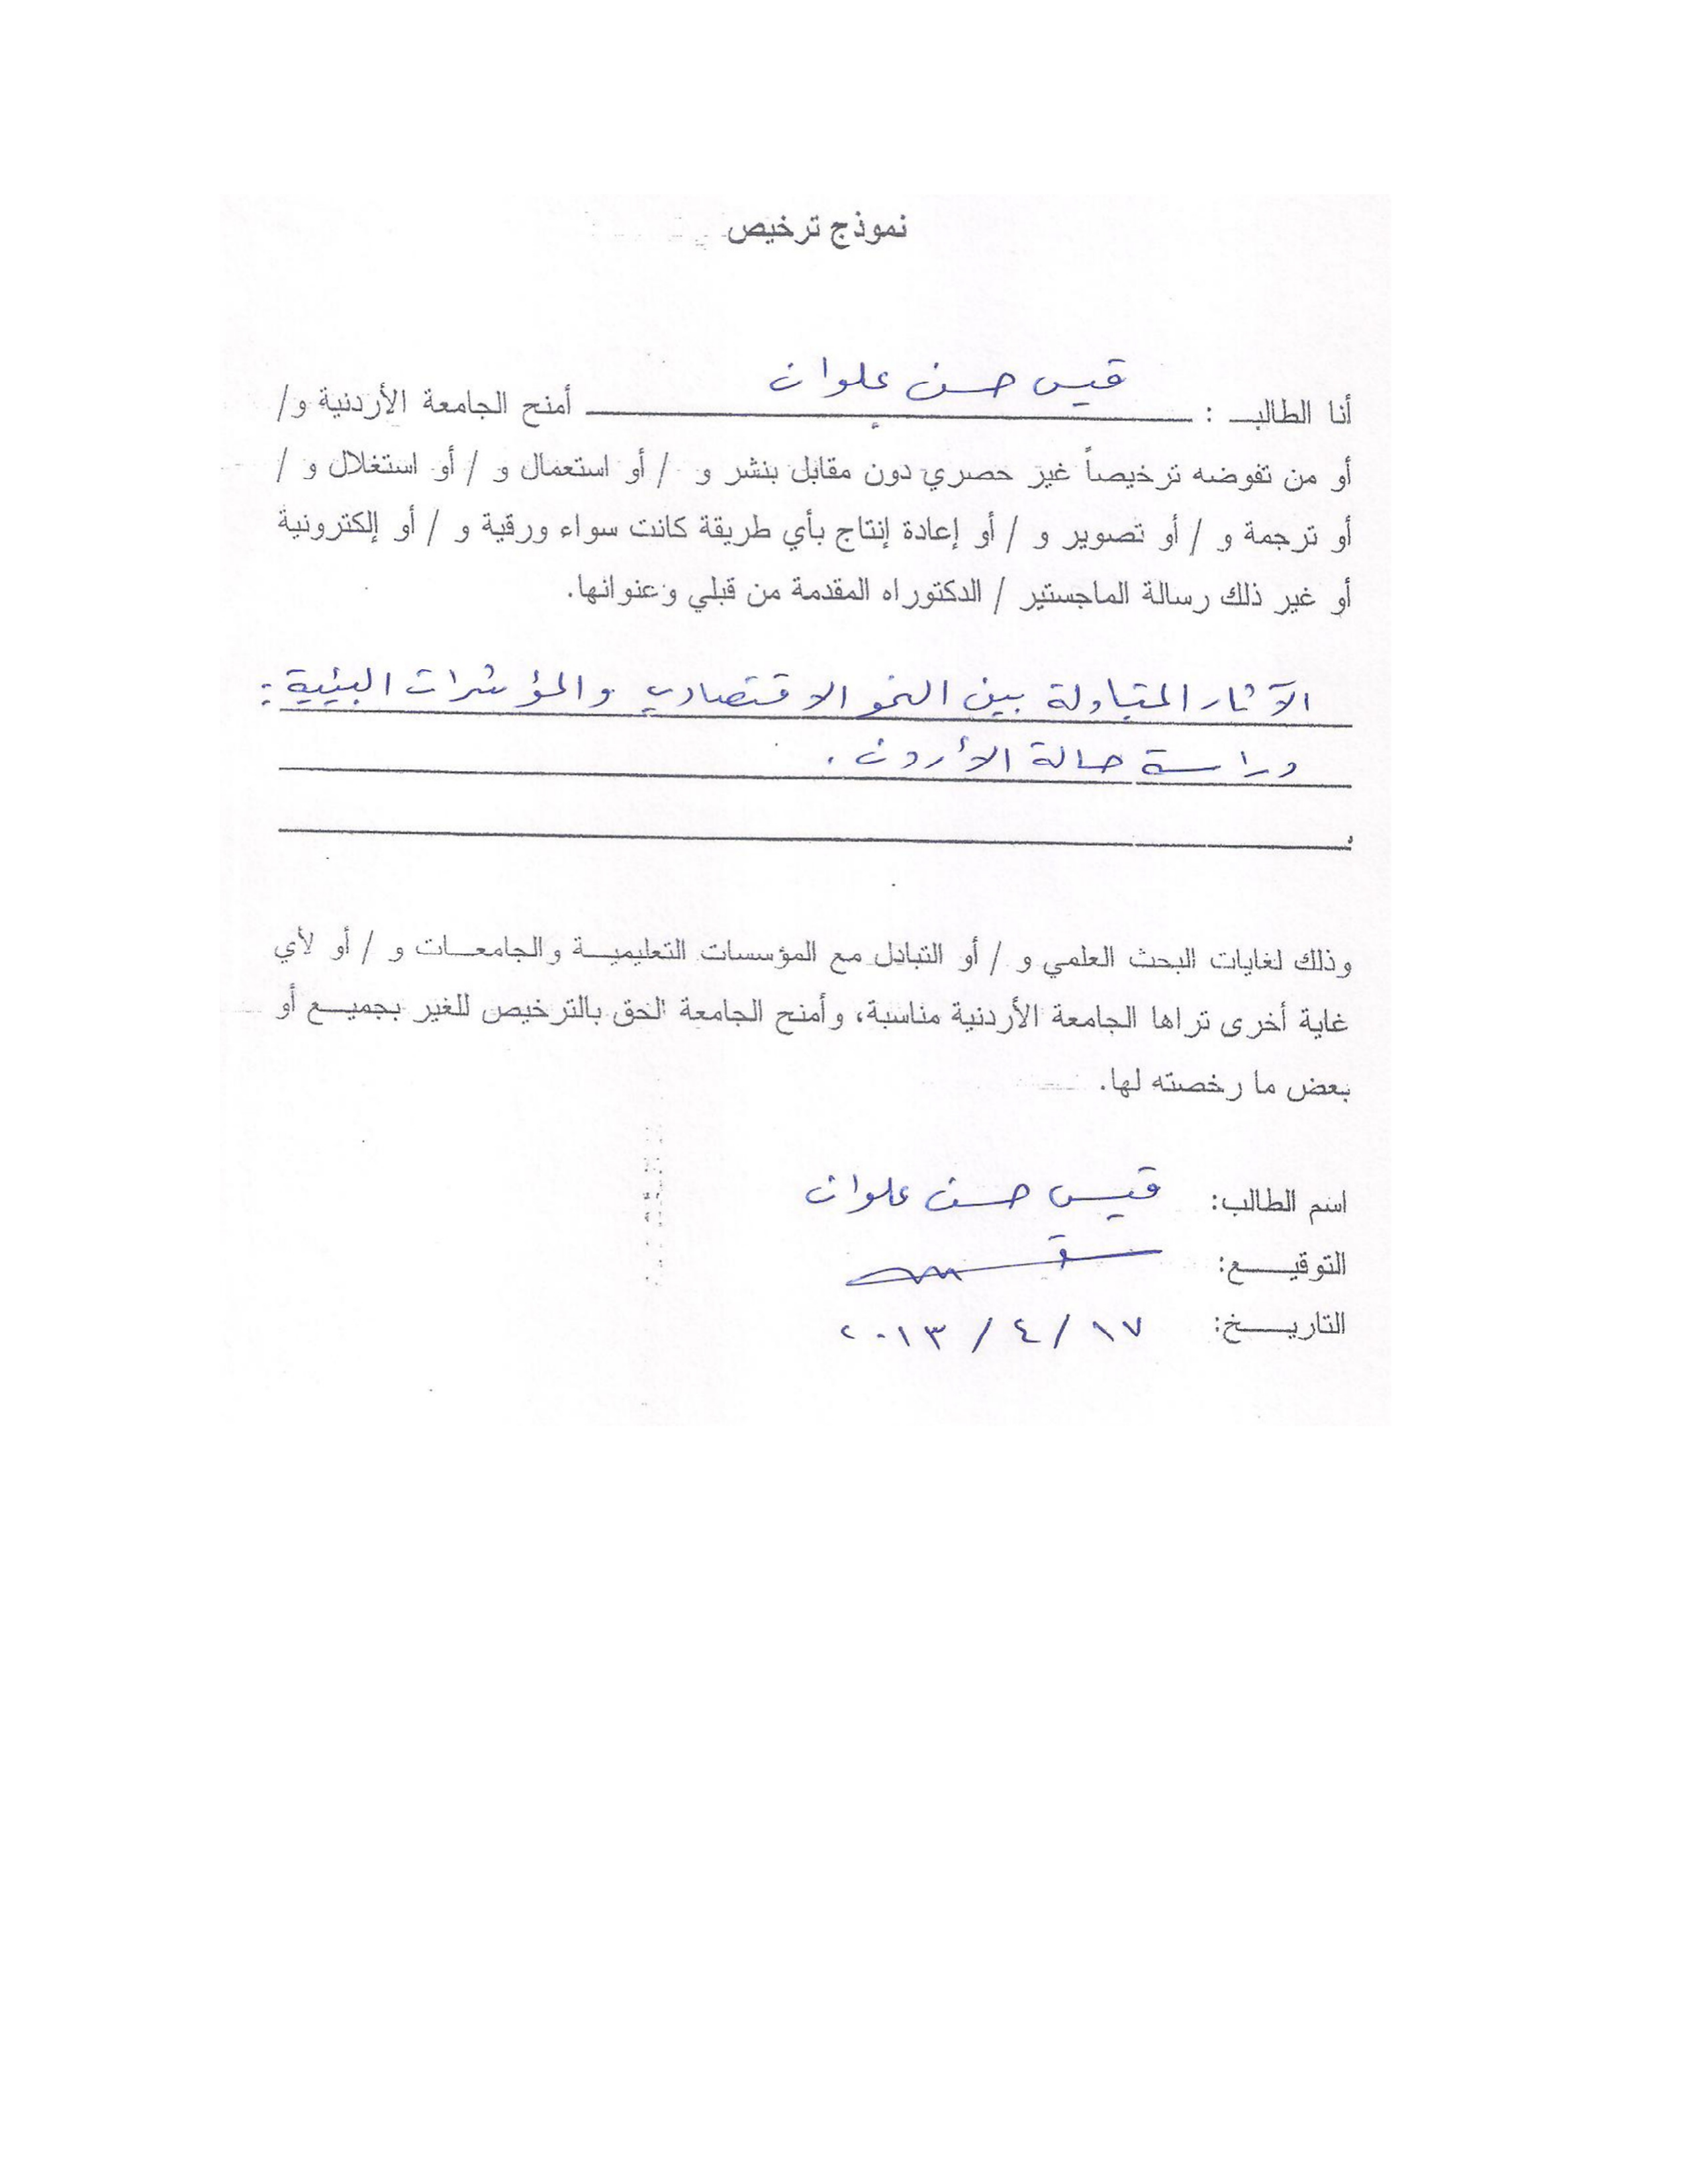 نموذج ترخيص
أنا الطالب : قيس حسن علوان أمنح الجامعة الأردنية و/
أو من تفوضه ترخيصاً غير حصري دون مقابل بنشر و / أو استعمال و / أو استغلال و /
أو ترجمة و / أو تصوير و / أو إعادة إنتاج بأي طريقة كانت سواء ورقية و / أو إلكترونية
أو غير ذلك رسالة الماجستير / الدكتوراه المقدمة من قبلي وعنوانها.
الآثار المتبادلة بين النمو الاقتصادي والمؤشرات البيئية :
دراسة حالة الأردن .
وذلك لغايات البحث العلمي و / أو التبادل مع المؤسسات التعليمية والجامعات و / أو لأي
غاية أخرى تراها الجامعة الأردنية مناسبة، وأمنح الجامعة الحق بالترخيص للغير بجميع أو
بعض ما رخصته لها.
اسم الطالب: قيس حسن علوان
التوقيع:
التاريخ: ١٧ / ٤ / ٢٠١٣